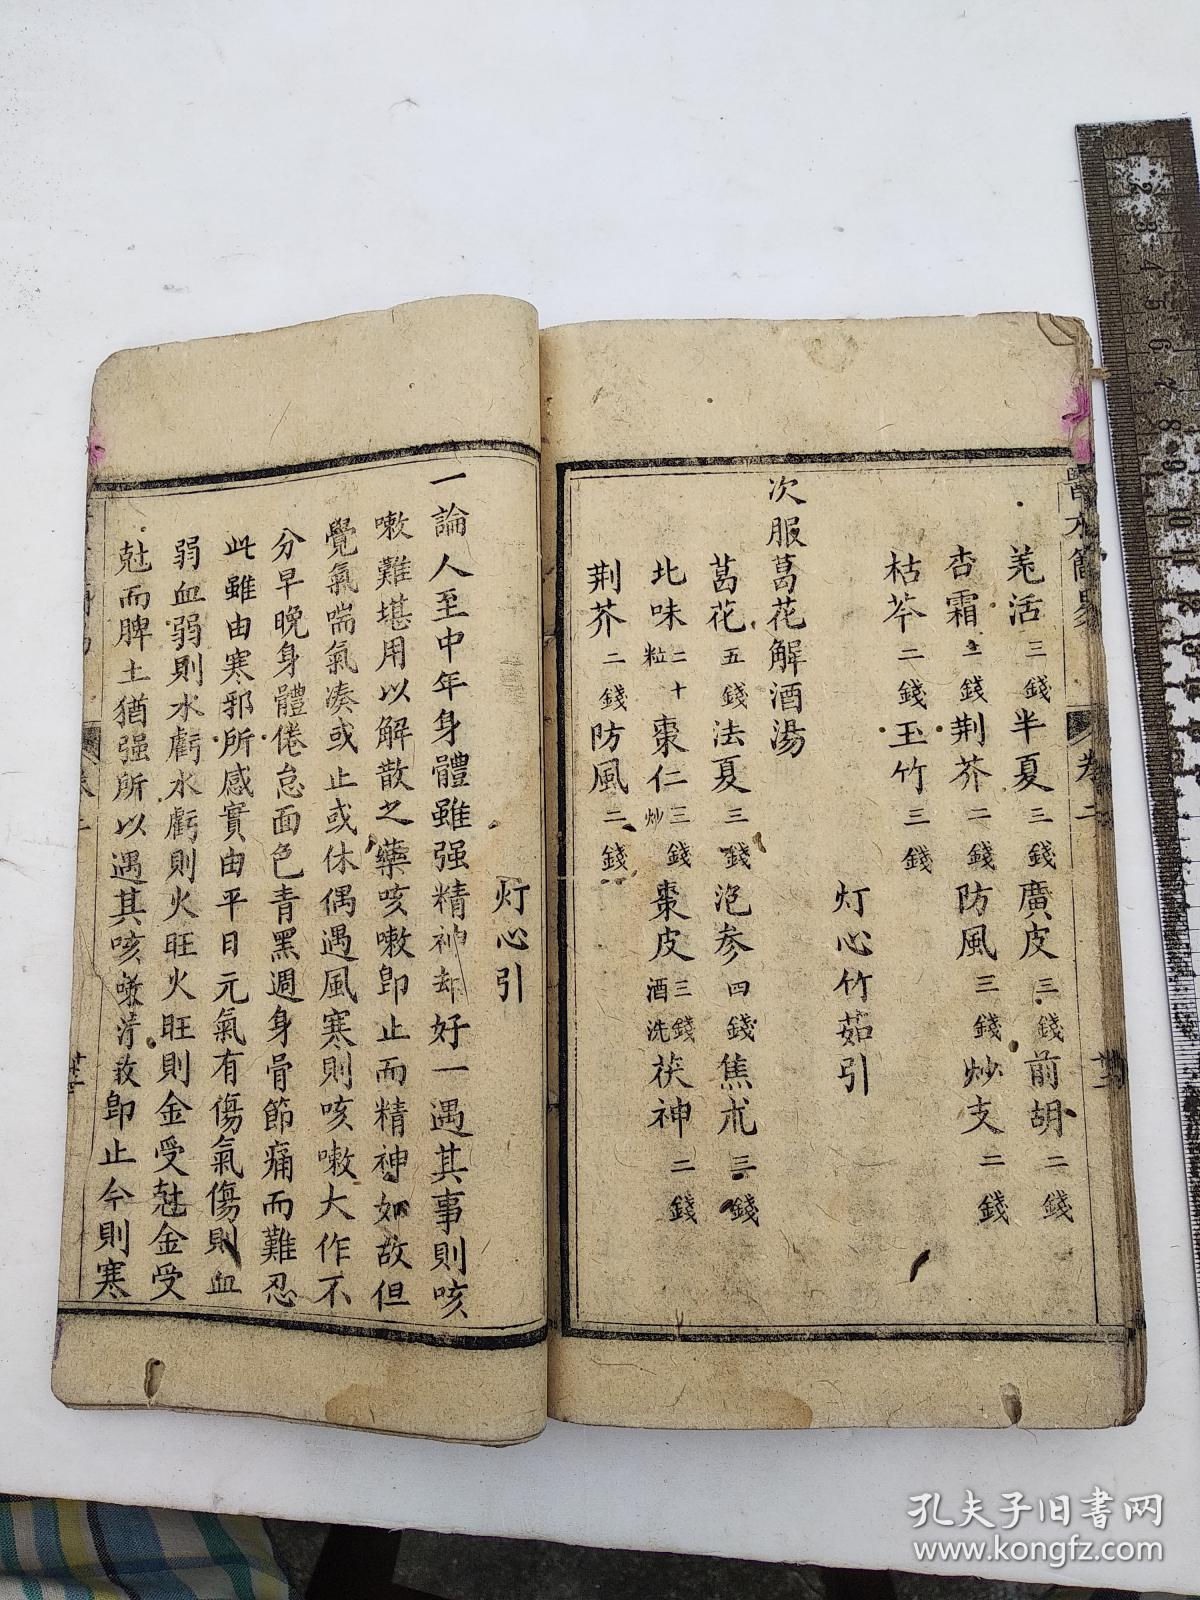 卷二
羌活三錢半夏三錢廣皮三錢前胡二錢
杏霜三錢荆芥二錢防風三錢炒支二錢
枯芩二錢玉竹三錢
灯心竹茹引
次服葛花解酒湯
葛花五錢法夏三錢泡参四錢焦朮三錢
北味二十粒棗仁三錢炒棗皮三錢酒洗茯神二錢
荆芥二錢防風二錢
灯心引
一論人至中年身體雖强精神却好一遇其事則咳
嗽難堪用以解散之藥咳嗽卽止而精神如故但
覺氣喘氣凑或止或休偶遇風寒則咳嗽大作不
分早晚身體倦怠面色青黑週身骨節痛而難忍
此雖由寒邪所感實由平日元氣有傷氣傷則血
弱血弱則水虧水虧則火旺火旺則金受尅金受
尅而脾土猶强所以遇其咳嗽清散卽止今則寒
孔夫子旧书网
www.kongfz.com
1 2 3 4 5 6 7 8 9 10 11 12 13